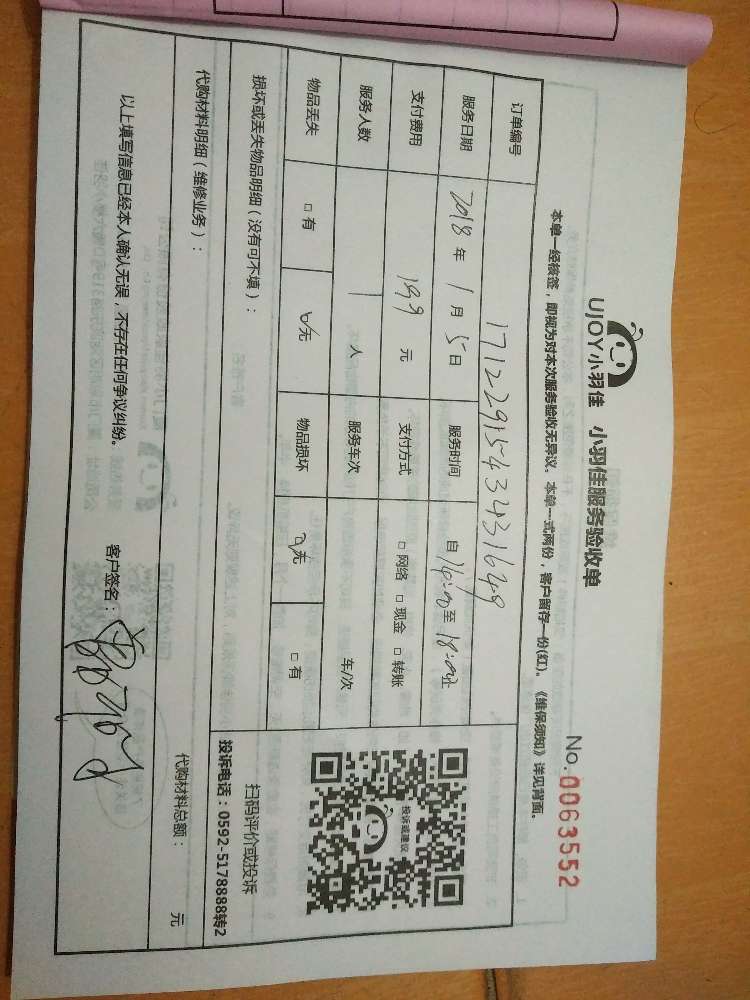 UJOY小羽佳 小羽佳服务验收单
No.0063552
本单一经核签，即视为对本次服务验收无异议。本单一式两份，客户留存一份(红)。《维保须知》详见背面。
订单编号
服务日期 2018年1月5日 服务时间 自16:00至18:00止
支付费用 199元 支付方式 □网络 □现金 □转账
服务人数 1人 服务车次 车/次
物品丢失 □有 □无 物品损坏 □无 □有
损坏或丢失物品明细（没有可不填）：
投诉或建议
扫码评价或投诉
投诉电话：0592-5178888转2
代购材料明细（维修业务）：
代购材料总额： 元
以上填写信息已经本人确认无误，不存在任何争议纠纷。
客户签名：